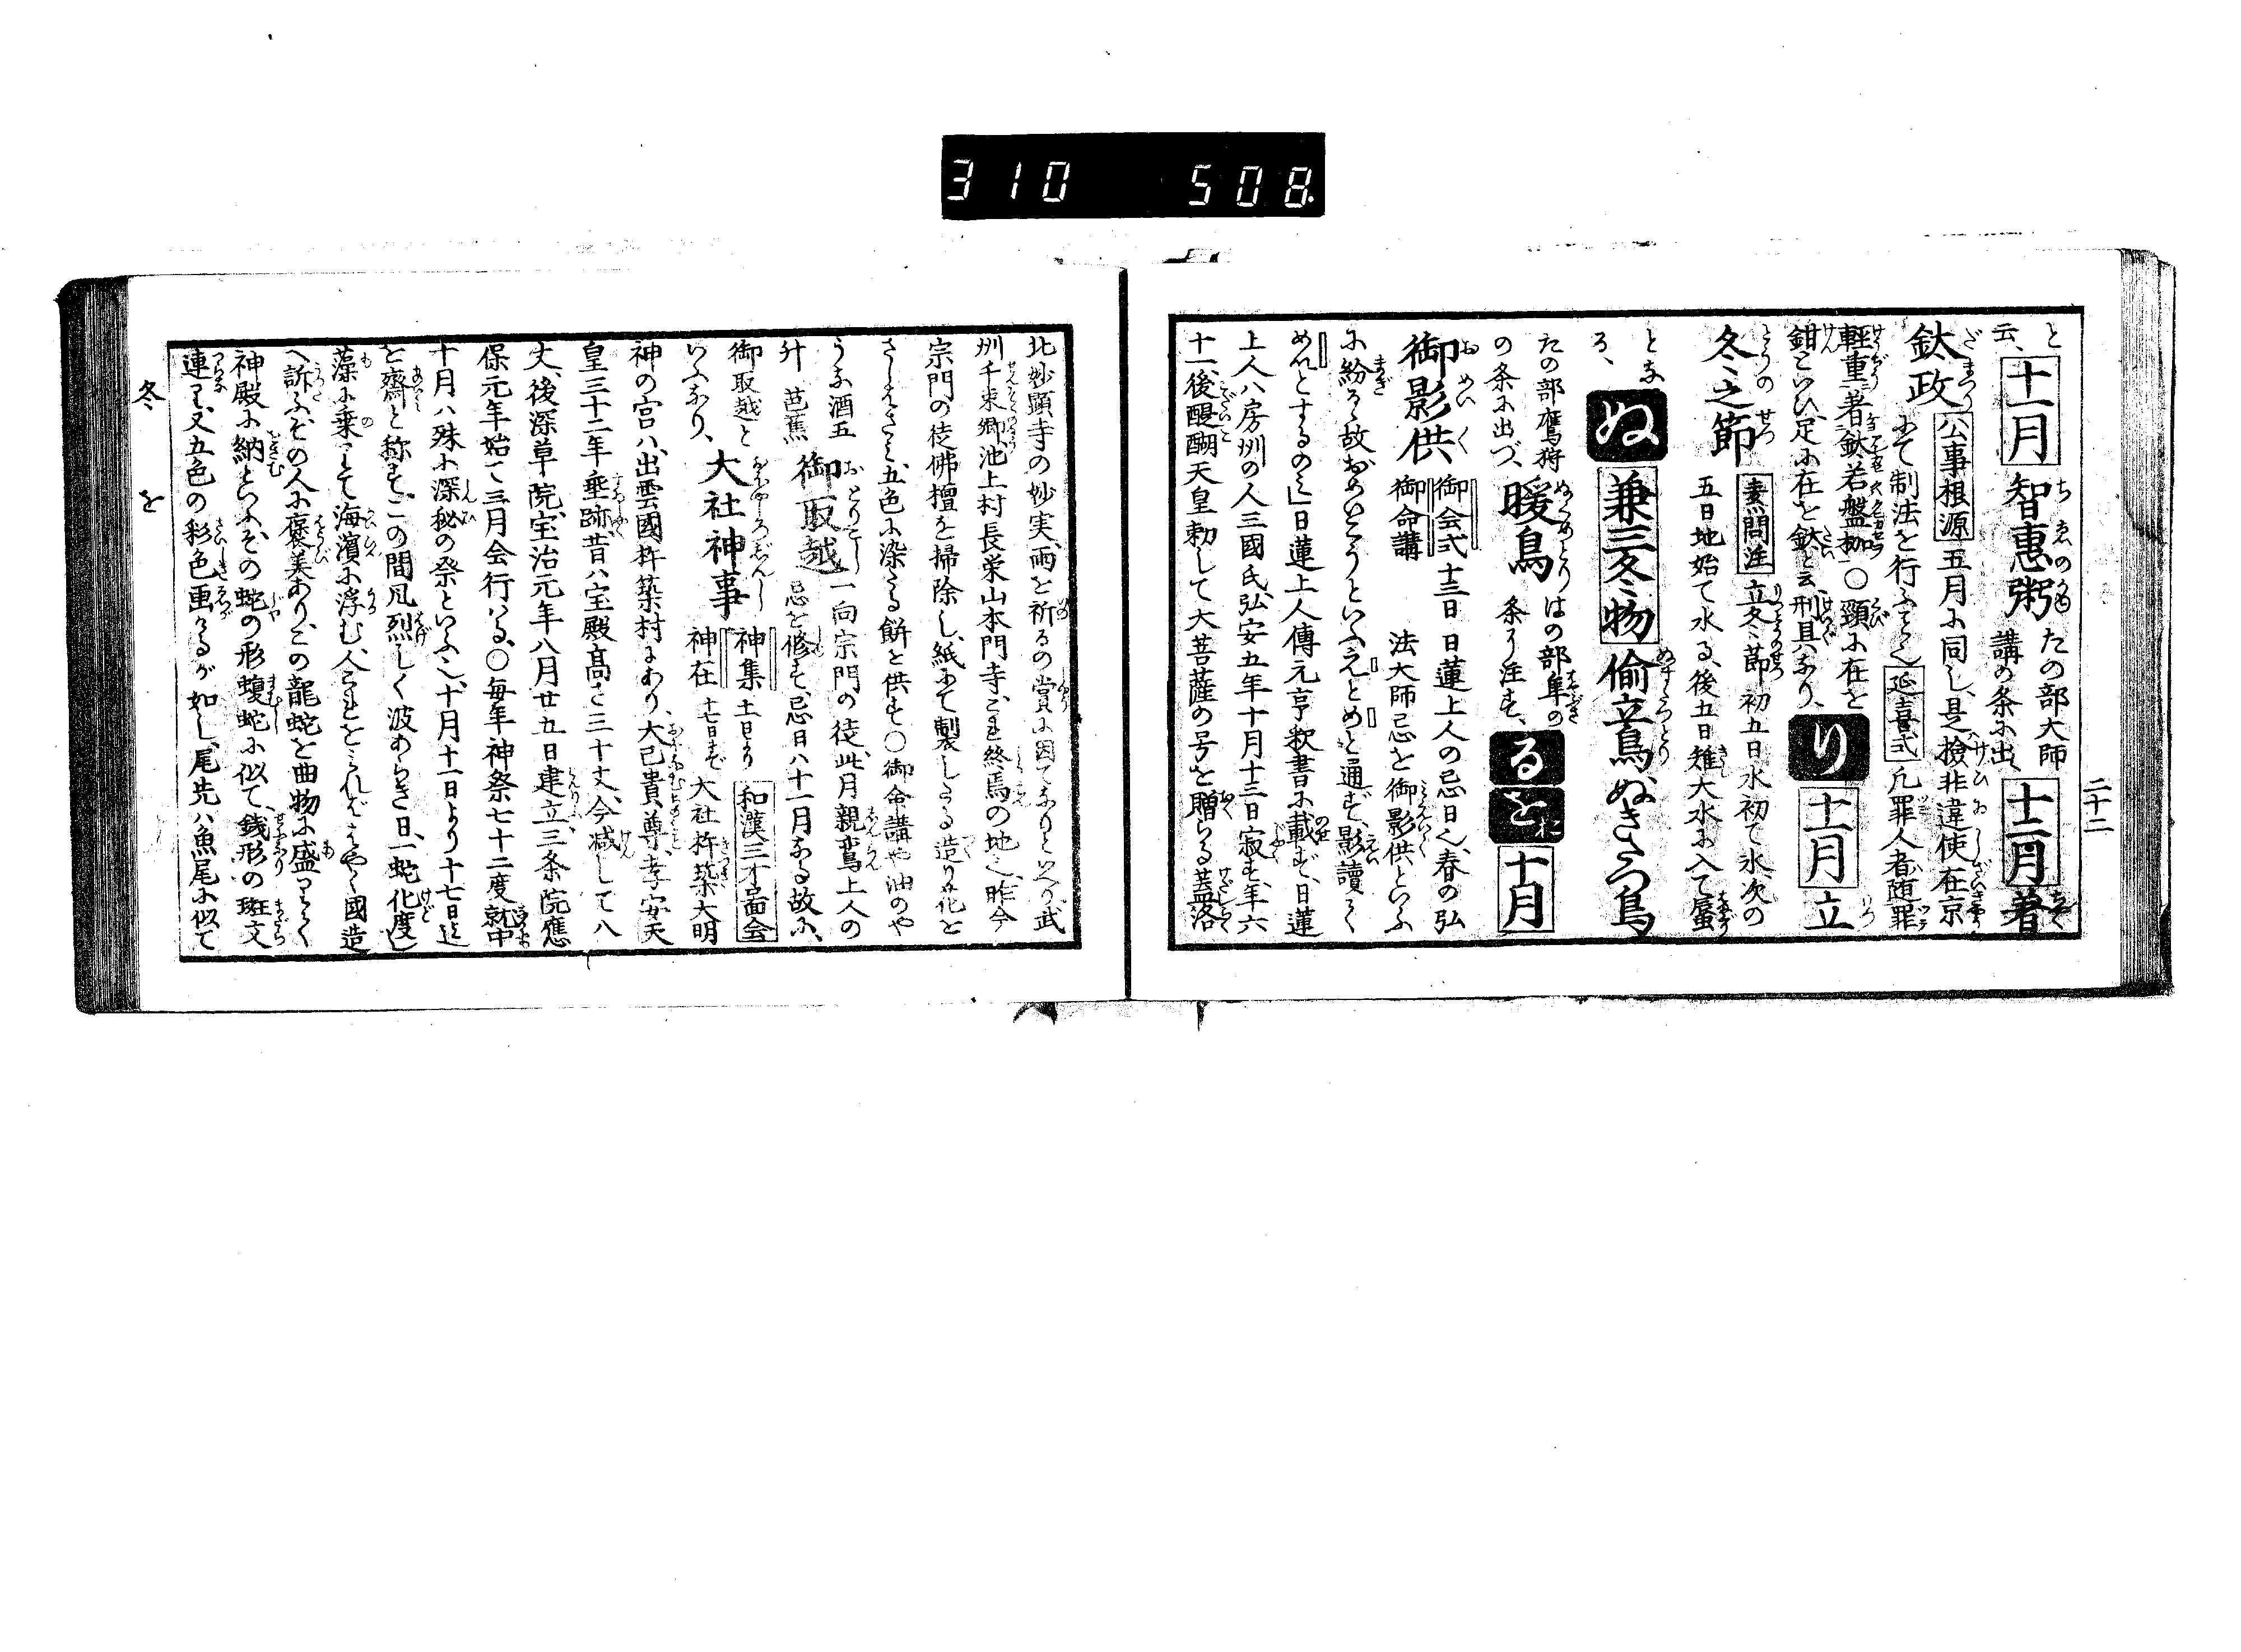 310 508
二十二
と云、 十一月 智惠粥 たの部大師講の条に出、 十二月 着
鈦政 公事根源 五月に同し、是檢非違使在京
にて制法を行ふ 延喜式 凡罪人者随罪
輕重著鈦若盤枷○頸に在を
鉗といひ、足に在を鈦と云、刑具なり、 り 十月 立
冬之節 素問注 立冬節初五日水初て氷、次の
五日地始て氷る、後五日雉大水に入て蜃
とな
る、 ぬ 兼三冬物 偸立鳥ぬきたつ鳥
たの部鷹狩の条に出づ、 暖鳥 はの部隼の条に注す、 る を 十月
御影供 御会式 御命講 十三日 日蓮上人の忌日也、春の弘法大師忌を御影供といふ
に紛るゝ故おめいこうといふえとめと通ず、影讀て
めいとするの也」日蓮上人傳元亨釈書に載ず、日蓮
上人ハ房州の人三國氏、弘安五年十月十三日寂す、年六
十一、後醍醐天皇勅して大菩薩の号を贈らる蓋洛
北妙顕寺の妙実、雨を祈るの賞に因てなりといへり武
州千束郷池上村長栄山本門寺、これ終焉の地也、昨今
宗門の徒佛檀を掃除し、紙にて製したる造り花を
さしはさみ、五色に染たる餅を供す○御命講や油のや
うな酒五升 芭蕉 御取越 一向宗門の徒、此月親鸞上人の忌を修す、忌日ハ十一月なる故に、
御取越と
いふなり、 大社神事 神集 神在 十一日より十七日まで 和漢三才圖会 大社杵築大明
神の宮ハ、出雲國杵築村にあり、大己貴尊、孝安天
皇三十二年垂跡、昔ハ宝殿高さ三十丈、今減して八
丈、後深草院、宝治元年八月廿五日建立、三条院應
保元年始て三月会行はる、○毎年神祭七十二度就中
十月ハ殊に深秘の祭といふ也、十月十一日より十七日迄
を齋と称す、この間風烈しく波あらき日、一蛇化度し
藻に乗して海濱に浮む、人これをとれバはやく國造
へ訴ふ、その人に褒美あり、この龍蛇を曲物に盛りて
神殿に納といふ、その蛇の形蝮蛇に似て、銭形の斑文
連り、又五色の彩色画けるが如し、尾先ハ魚尾に似て
冬 を